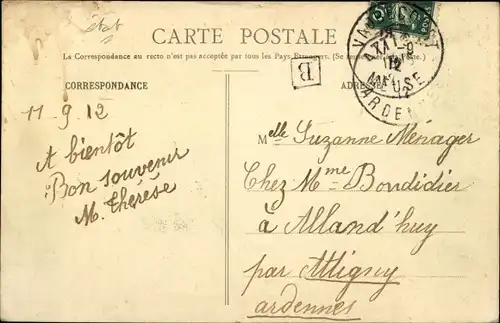 état
CARTE POSTALE
La Correspondance au recto n'est pas acceptée par tous les Pays Étrangers. (Se
CORRESPONDANCE
ADRESSE
B
MEUSE
12
11-9.12
A bientôt
Bon souvenir
M. Thérèse
Melle Suzanne Ménager
Chez Mme Bondidier
à Alland'huy
par Attigny
ardennes